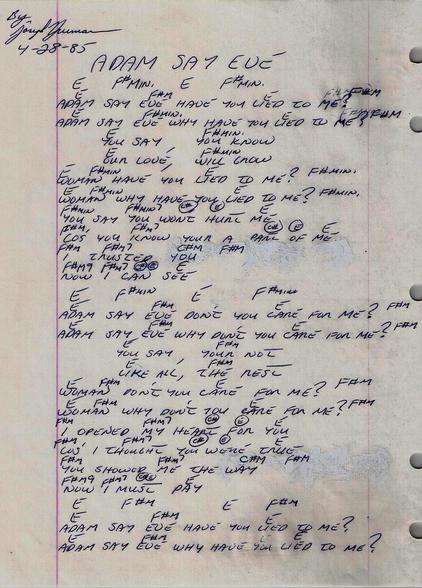 By
4-28-85
ADAM SAY EVE
E F#MIN. E F#MIN.
E F#M E F#M
ADAM SAY EVE HAVE YOU LIED TO ME?
F#MIN. E F#M
ADAM SAY EVE WHY HAVE YOU LIED TO ME?
E F#MIN.
YOU SAY YOU KNOW
E F#MIN
OUR LOVE, WILL GROW
E F#MIN E F#MIN.
WOMAN HAVE YOU LIED TO ME?
E F#MIN E F#MIN.
WOMAN WHY HAVE YOU LIED TO ME?
F#MIN F#MIN7 C# B E
YOU SAY YOU WONT HURT ME
F#M, F#M7 C# B E
COS YOU KNOW YOUR A PART OF ME
F#M F#M7 C#M F#M
I TRUSTED YOU
F#M9 F#M7
NOW I CAN SEE
E F#MIN E F#MIN
E F#M E F#M
ADAM SAY EVE DON'T YOU CARE FOR ME?
E F#M E F#M
ADAM SAY EVE WHY DON'T YOU CARE FOR ME?
E F#M
YOU SAY, YOUR NOT
E F#M
LIKE ALL, THE REST
E F#M E F#M
WOMAN DON'T YOU CARE FOR ME?
E F#M E F#M
WOMAN WHY DON'T YOU CARE FOR ME?
F#M F#M7 C# B E
I OPENED MY HEART FOR YOU
F#M, F#M7 C# B E
COS I THOUGHT YOU WERE TRUE
F#M F#M7 C#M F#M
YOU SHOWED ME THE WAY
F#M9 F#M7
NOW I MUST PAY
E F#M E F#M
E F#M E
ADAM SAY EVE HAVE YOU LIED TO ME?
E F#M E F#M
ADAM SAY EVE WHY HAVE YOU LIED TO ME?